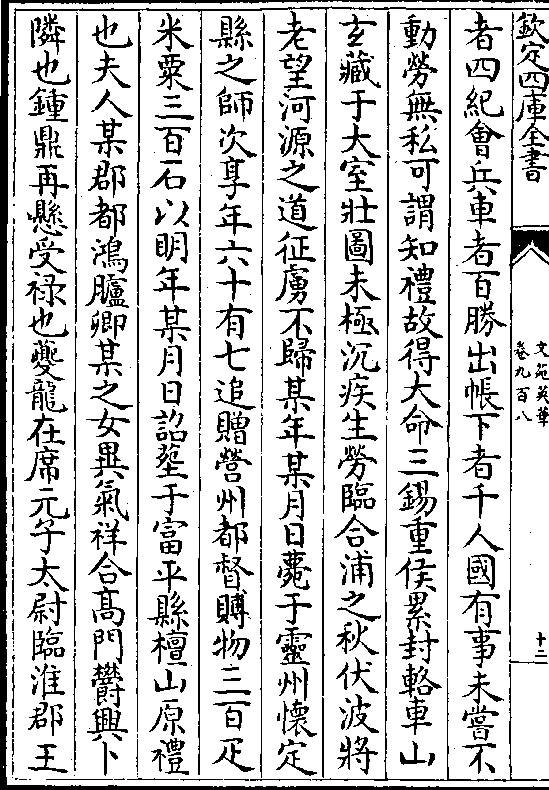 欽定四庫全書
文苑英華
卷九百八
十二
者四紀會兵車者百勝出帳下者千人國有事未嘗不
動勞無私可謂知禮故得大命三錫重侯累封輅車山
玄藏于大室壯圖未極沉疾生勞臨合浦之秋伏波將
老望河源之道征虜不歸某年某月日薨于靈州懷定
縣之師次享年六十有七追贈營州都督賻物三百疋
米粟三百石以明年某月日詔塟于富平縣檀山原禮
也夫人某郡都鴻臚卿某之女異氣祥合髙門欝興卜
隣也鍾鼎再懸受禄也夔龍在席元子太尉臨淮郡王